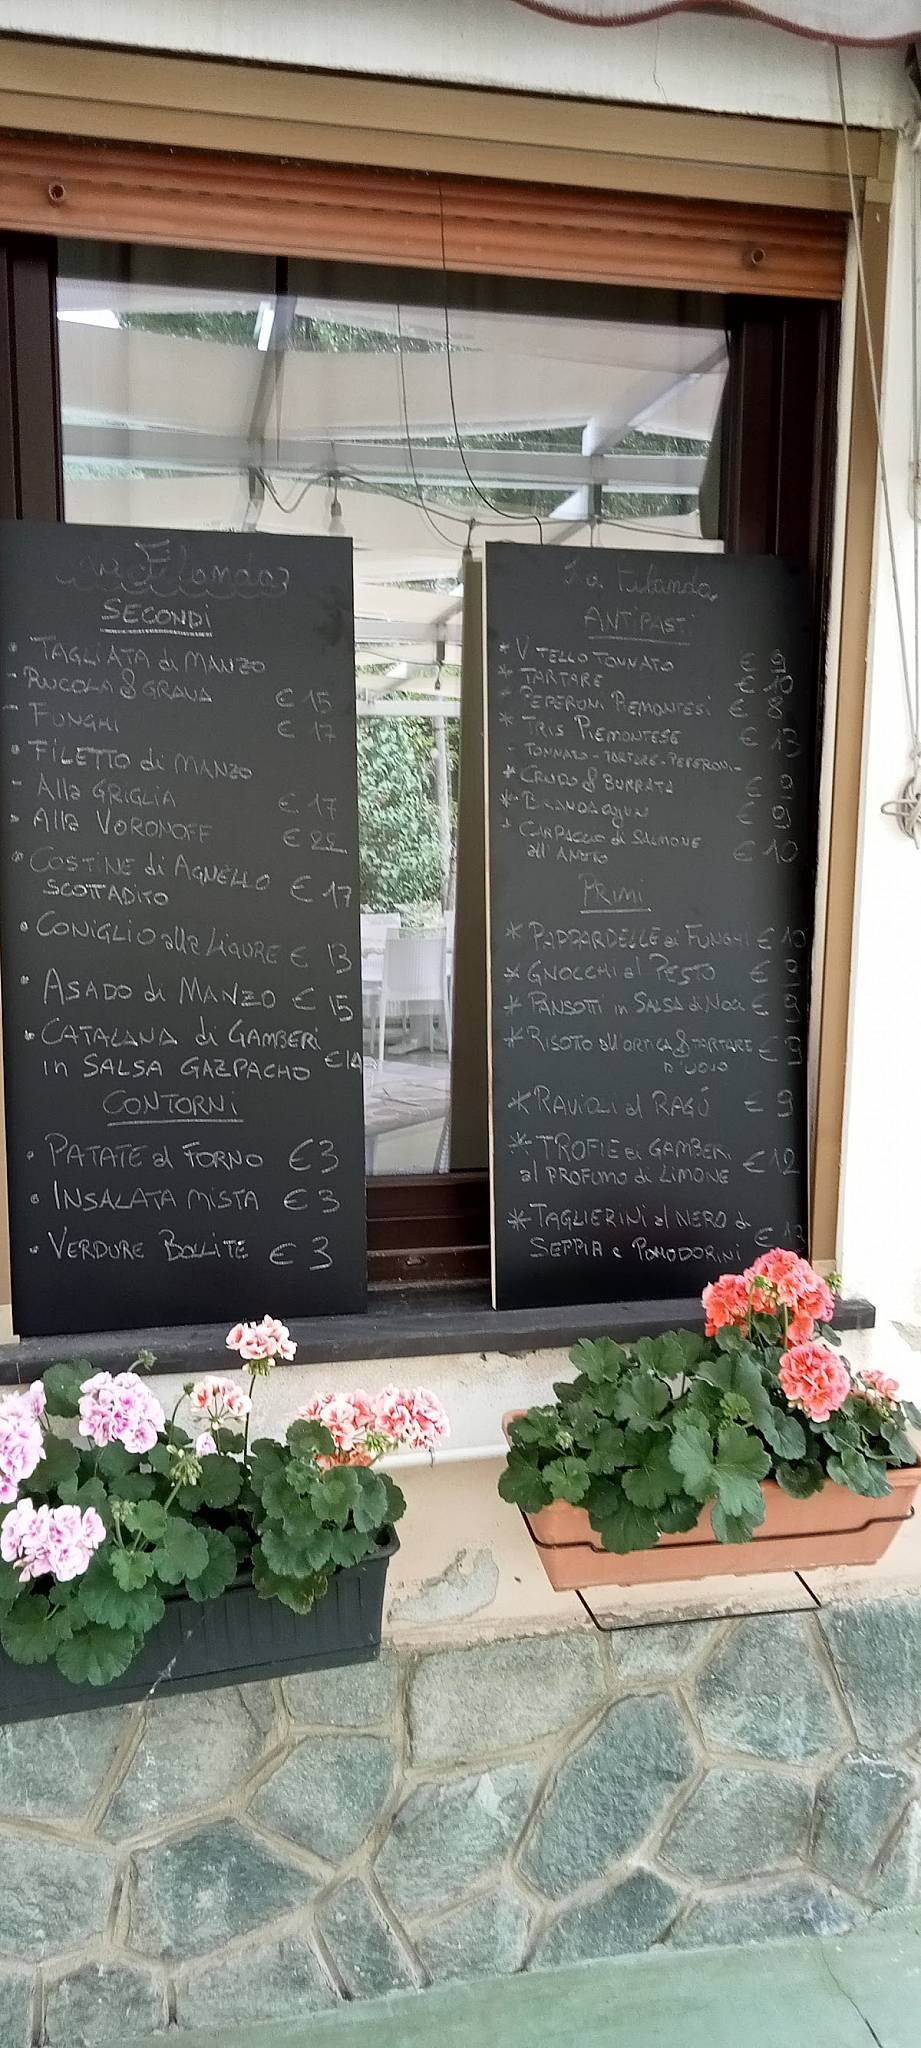 La Filanda
SECONDI
• TAGLIATA di MANZO
- RUCOLA & GRANA € 15
- FUNGHI € 17
• FILETTO di MANZO
- Alla GRIGLIA € 17
- Alla VORONOFF € 22
• COSTINE di AGNELLO € 17
SCOTTADITO
• CONIGLIO alla LIGURE € 13
• ASADO di MANZO € 15
• CATALANA di GAMBERI
in SALSA GAZPACHO
CONTORNI
• PATATE al FORNO € 3
• INSALATA MISTA € 3
• VERDURE BOLLITE € 3
La Filanda
ANTIPASTI
* VITELLO TONNATO € 9
* TARTARE € 10
* PEPERONI PIEMONTESI € 8
* TRIS PIEMONTESE € 13
- TONNATO - TARTARE - PEPERONI -
* CRUDO & BURRATA € 9
* BRANDACUJUN € 9
* CARPACCIO di SALMONE
all'ANETO € 10
PRIMI
* PAPPARDELLE ai FUNGHI € 10
* GNOCCHI al PESTO € 9
* PANSOTTI in SALSA di NOCI € 9
* RISOTO all'ORTICA & TARTARE € 9
D'UOVO
* RAVIOLI al RAGÚ € 9
* TROFIE ai GAMBERI
al PROFUMO di LIMONE € 12
* TAGLIERINI al NERO di
SEPPIA e POMODORINI